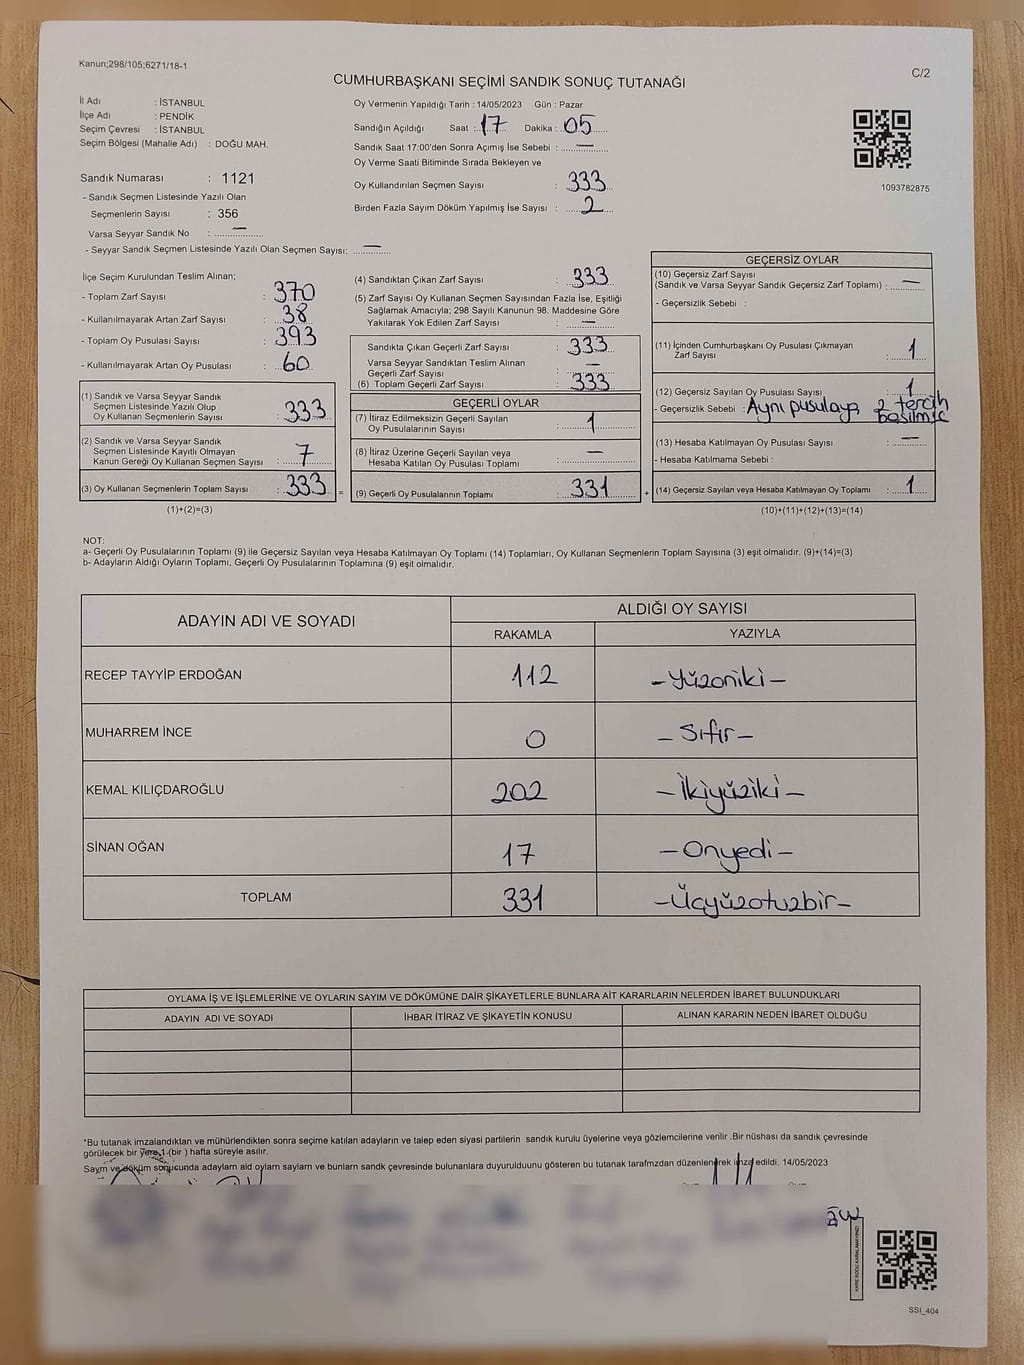 Kanun;298/105;6271/18-1
C/2
CUMHURBAŞKANI SEÇİMİ SANDIK SONUÇ TUTANAĞI
İl Adı : İSTANBUL
İlçe Adı : PENDİK
Seçim Çevresi : İSTANBUL
Seçim Bölgesi (Mahalle Adı) : DOĞU MAH.
Sandık Numarası : 1121
- Sandık Seçmen Listesinde Yazılı Olan
Seçmenlerin Sayısı : 356
Varsa Seyyar Sandık No : —
- Seyyar Sandık Seçmen Listesinde Yazılı Olan Seçmen Sayısı: —
Oy Vermenin Yapıldığı Tarih : 14/05/2023 Gün : Pazar
Sandığın Açıldığı Saat : 17 Dakika : 05
Sandık Saat 17:00'den Sonra Açımış İse Sebebi : —
Oy Verme Saati Bitiminde Sırada Bekleyen ve
Oy Kullandırılan Seçmen Sayısı : 333
Birden Fazla Sayım Döküm Yapılmış İse Sayısı : 2
1093782875
İlçe Seçim Kurulundan Teslim Alınan;
- Toplam Zarf Sayısı : 370
- Kullanılmayarak Artan Zarf Sayısı : 38
- Toplam Oy Pusulası Sayısı : 393
- Kullanılmayarak Artan Oy Pusulası : 60
(1) Sandık ve Varsa Seyyar Sandık
Seçmen Listesinde Yazılı Olup
Oy Kullanan Seçmenlerin Sayısı : 333
(2) Sandık ve Varsa Seyyar Sandık
Seçmen Listesinde Kayıtlı Olmayan
Kanun Gereği Oy Kullanan Seçmen Sayısı : 7
(3) Oy Kullanan Seçmenlerin Toplam Sayısı : 333 =
(1)+(2)=(3)
(4) Sandıktan Çıkan Zarf Sayısı : 333
(5) Zarf Sayısı Oy Kullanan Seçmen Sayısından Fazla İse, Eşitliği
Sağlamak Amacıyla; 298 Sayılı Kanunun 98. Maddesine Göre
Yakılarak Yok Edilen Zarf Sayısı : —
Sandıkta Çıkan Geçerli Zarf Sayısı : 333
Varsa Seyyar Sandıktan Teslim Alınan
Geçerli Zarf Sayısı : —
(6) Toplam Geçerli Zarf Sayısı : 333
GEÇERLİ OYLAR
(7) İtiraz Edilmeksizin Geçerli Sayılan
Oy Pusulalarının Sayısı : 1
(8) İtiraz Üzerine Geçerli Sayılan veya
Hesaba Katılan Oy Pusulası Toplamı : —
(9) Geçerli Oy Pusulalarının Toplamı : 331 +
GEÇERSİZ OYLAR
(10) Geçersiz Zarf Sayısı
(Sandık ve Varsa Seyyar Sandık Geçersiz Zarf Toplamı) : —
- Geçersizlik Sebebi :
(11) İçinden Cumhurbaşkanı Oy Pusulası Çıkmayan
Zarf Sayısı : 1
(12) Geçersiz Sayılan Oy Pusulası Sayısı : 1
- Geçersizlik Sebebi : Aynı pusulaya 2 tercih
basılmış
(13) Hesaba Katılmayan Oy Pusulası Sayısı : —
- Hesaba Katılmama Sebebi :
(14) Geçersiz Sayılan veya Hesaba Katılmayan Oy Toplamı : 1
(10)+(11)+(12)+(13)=(14)
NOT:
a- Geçerli Oy Pusulalarının Toplamı (9) ile Geçersiz Sayılan veya Hesaba Katılmayan Oy Toplamı (14) Toplamları, Oy Kullanan Seçmenlerin Toplam Sayısına (3) eşit olmalıdır. (9)+(14)=(3)
b- Adayların Aldığı Oyların Toplamı, Geçerli Oy Pusulalarının Toplamına (9) eşit olmalıdır.
ADAYIN ADI VE SOYADI ALDIĞI OY SAYISI
RAKAMLA YAZIYLA
RECEP TAYYİP ERDOĞAN 112 –Yüzoniki–
MUHARREM İNCE 0 –Sıfır–
KEMAL KILIÇDAROĞLU 202 –İkiyüziki–
SİNAN OĞAN 17 –Onyedi–
TOPLAM 331 –Üçyüzotuzbir–
OYLAMA İŞ VE İŞLEMLERİNE VE OYLARIN SAYIM VE DÖKÜMÜNE DAİR ŞİKAYETLERLE BUNLARA AİT KARARLARIN NELERDEN İBARET BULUNDUKLARI
ADAYIN ADI VE SOYADI İHBAR İTİRAZ VE ŞİKAYETİN KONUSU ALINAN KARARIN NEDEN İBARET OLDUĞU
*Bu tutanak imzalandıktan ve mühürlendikten sonra seçime katılan adayların ve talep eden siyasi partilerin sandık kurulu üyelerine veya gözlemcilerine verilir .Bir nüshası da sandık çevresinde
görülecek bir yere 1.(bir ) hafta süreyle asılır.
Sayım ve döküm sonucunda adayların ald oyların saylarn ve bunlarn sandk çevresinde bulunanlara duyurulduunu gösteren bu tutanak tarafmzdan düzenlenerek imza edildi. 14/05/2023
SSI_404